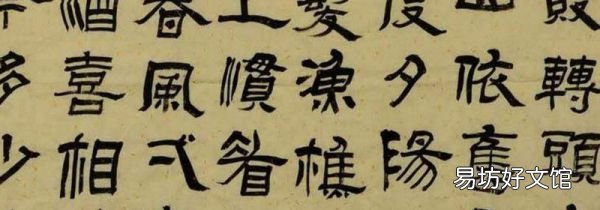 敗轉頭
山依舊
度夕陽
髮漁樵
上慣看
春風弌
酒喜相
多少
易坊好文馆